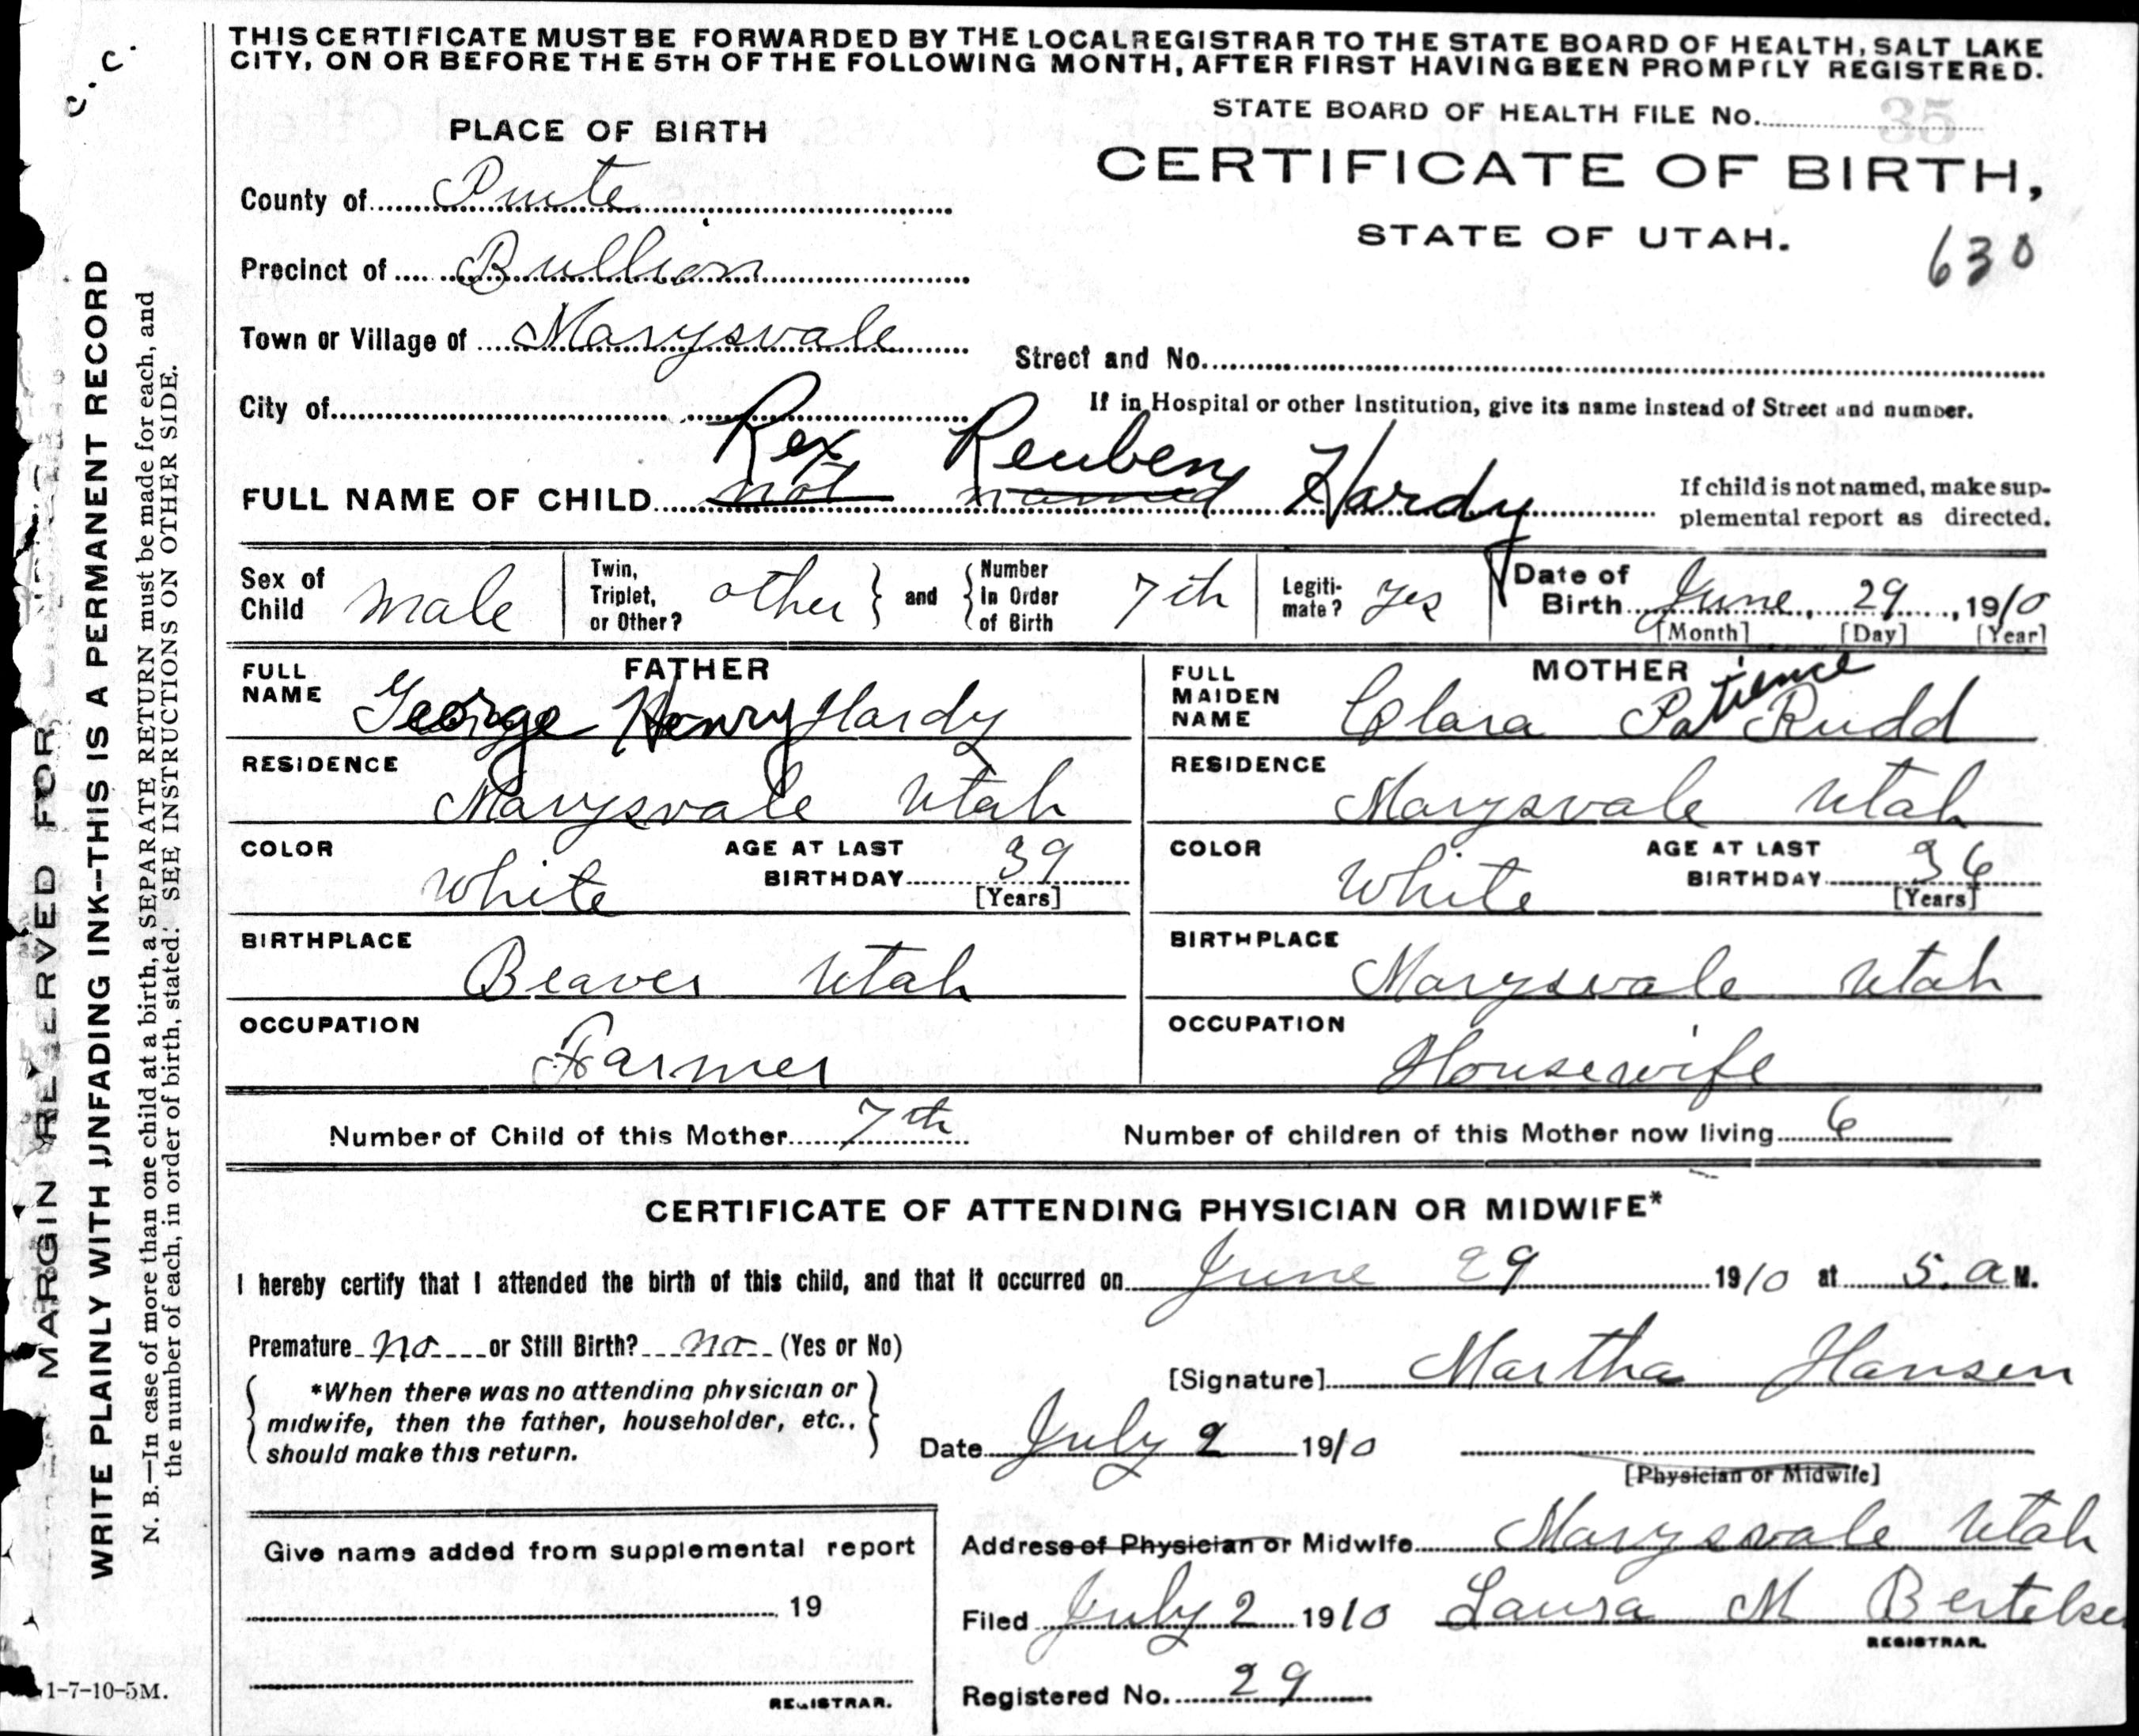 C. C.
THIS CERTIFICATE MUST BE FORWARDED BY THE LOCAL REGISTRAR TO THE STATE BOARD OF HEALTH, SALT LAKE
CITY, ON OR BEFORE THE 5TH OF THE FOLLOWING MONTH, AFTER FIRST HAVING BEEN PROMPTLY REGISTERED.
STATE BOARD OF HEALTH FILE No. 35
PLACE OF BIRTH
CERTIFICATE OF BIRTH,
STATE OF UTAH.
630
County of Piute
Precinct of Bullion
Town or Village of Marysvale
Street and No.
City of
If in Hospital or other Institution, give its name instead of Street and number.
Rex Reuben Hardy
FULL NAME OF CHILD not named
If child is not named, make sup-
plemental report as directed.
Sex of Child male
Twin, Triplet, or Other? other and
Number In Order of Birth 7th
Legiti-mate? yes
Date of Birth June, 29, 1910
[Month] [Day] [Year]
FATHER
FULL NAME George Henry Hardy
RESIDENCE
Marysvale Utah
COLOR white
AGE AT LAST BIRTHDAY 39
[Years]
BIRTHPLACE
Beaver Utah
OCCUPATION
Farmer
MOTHER
FULL MAIDEN NAME Clara Patience Rudd
RESIDENCE
Marysvale Utah
COLOR White
AGE AT LAST BIRTHDAY 36
[Years]
BIRTHPLACE
Marysvale Utah
OCCUPATION
Housewife
Number of Child of this Mother 7th
Number of children of this Mother now living 6
CERTIFICATE OF ATTENDING PHYSICIAN OR MIDWIFE*
I hereby certify that I attended the birth of this child, and that it occurred on June 29 1910 at 5. a M.
Premature no or Still Birth? no (Yes or No)
*When there was no attending physician or
midwife, then the father, householder, etc.,
should make this return.
[Signature] Martha Hansen
Date July 2 1910
[Physician or Midwife]
Give name added from supplemental report
19
REGISTRAR.
Address of Physician or Midwife Marysvale Utah
Filed July 2 1910 Laura M Bertelsen
REGISTRAR.
Registered No. 29
MARGIN RESERVED FOR
WRITE PLAINLY WITH UNFADING INK--THIS IS A PERMANENT RECORD
N. B.—In case of more than one child at a birth, a SEPARATE RETURN must be made for each, and
the number of each, in order of birth, stated. SEE INSTRUCTIONS ON OTHER SIDE.
1-7-10-5M.